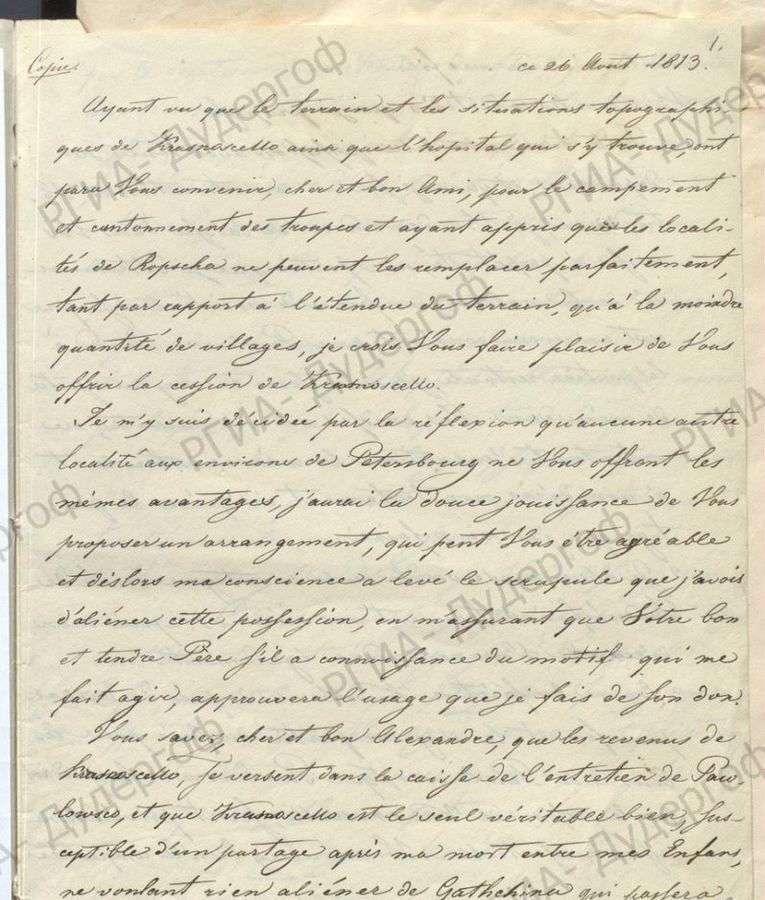 1.
Copie.
ce 26 Aout 1813.
Ayant vu que le terrain et les situations topographi
ques de Krasnoscello ainsi que l'hopital qui s'y trouve, ont
paru Vous convenir, cher et bon Ami, pour le campement
et cantonnement des troupes et ayant appris que les locali-
tés de Ropscha ne peuvent les remplacer parfaitement,
tant par rapport à l'étendue du terrain, qu'à la moindre
quantité de villages, je crois Vous faire plaisir de Vous
offrir la cession de Krasnoscello.
Je m'y suis decidée par la réflexion qu'aucune autre
localité aux environs de Petersbourg ne Vous offrant les
mêmes avantages, j'aurai la douce jouissance de Vous
proposer un arrangement, qui peut Vous être agréable
et dèslors ma conscience a levé le scrupule que j'avois
d'aliéner cette possession, en m'assurant que Vôtre bon
et tendre Père s'il a connoissance du motif qui me
fait agir, approuvera l'usage que je fais de son don.
Vous savez, cher et bon Alexandre, que les revenus de
Krasnoscello, se versent dans la caisse de l'entretien de Paw-
lowsco, et que Krasnoscello est le seul véritable bien sus-
ceptible d'un partage après ma mort entre mes Enfans,
ne voulant rien aliéner de Gathchina qui passera
РГИА- Дудергоф
РГИА- Дудергоф
РГИА- Дудергоф
РГИА-
Дудергоф
РГИА- Дудергоф
РГИА- Дудергоф
РГИА- Дудергоф